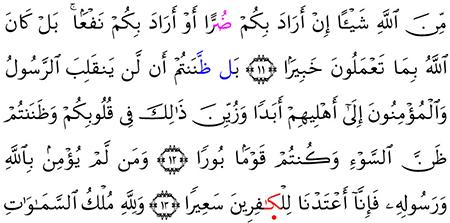 مِّنَ ٱللَّهِ شَيْـًٔا إِنْ أَرَادَ بِكُمْ ضُرًّا أَوْ أَرَادَ بِكُمْ نَفْعًۢا ۚ بَلْ كَانَ
ٱللَّهُ بِمَا تَعْمَلُونَ خَبِيرًۢا ﴿١١﴾ بَل ظَّنَنتُمْ أَن لَّن يَنقَلِبَ ٱلرَّسُولُ
وَٱلْمُؤْمِنُونَ إِلَىٰٓ أَهْلِيهِمْ أَبَدًا وَزُيِّنَ ذَٰلِكَ فِى قُلُوبِكُمْ وَظَنَنتُمْ
ظَنَّ ٱلسَّوْءِ وَكُنتُمْ قَوْمًۢا بُورًا ﴿١٢﴾ وَمَن لَّمْ يُؤْمِنۢ بِٱللَّهِ
وَرَسُولِهِۦ فَإِنَّآ أَعْتَدْنَا لِلْكَـٰفِرِينَ سَعِيرًا ﴿١٣﴾ وَلِلَّهِ مُلْكُ ٱلسَّمَـٰوَٰتِ